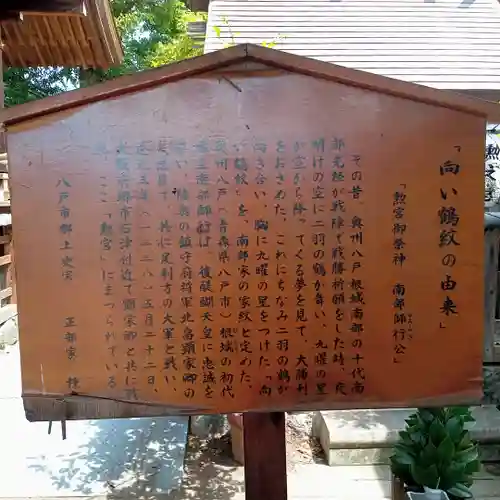 「向い鶴紋の由来」
「勲宮御祭神　南部師行公」
その昔、奥州八戸根城南部の十代南
部光経が戦陣で戦勝祈願をした時、夜
明けの空に二羽の鶴が舞い、九曜の星
が空から降ってくる夢を見て、大勝利
をおさめた。これにちなみ二羽の鶴が
向き合い、胸に九曜の星をつけた「向
い鶴紋」を、南部家の家紋と定めた。
奥州八戸(青森県八戸市)根城の初代
城主南部師行は、後醍醐天皇に忠誠を
誓い、陸奥の鎮守府将軍北畠顕家卿の
共に足利方の大軍と戦い、
三年(一三三八)五月二十二日、
石津付近で顕家卿と共に戦
ここ「勲宮」にまつられている
八戸市郷土史家　正部家　種